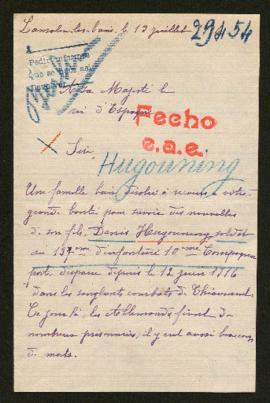 Lamalou-les-bains, le 13 juillet
29454
Pedir informes
A sa Majesté le
roi d'Espagne
Fecho
e.a.e.
Sire
Hugouneng
Une famille bien désolée a recours à votre
grande bonté pour avoir des nouvelles
de son fils, Denis Hugouneng soldat
au 137eme d'infanterie 10eme Compagnie
porté disparu depuis le 12 juin 1916
dans les sanglants combats de Thiaumont.
Ce jour là les Allemands firent de
nombreux prisonniers, il y eut aussi beaucoup
de morts.